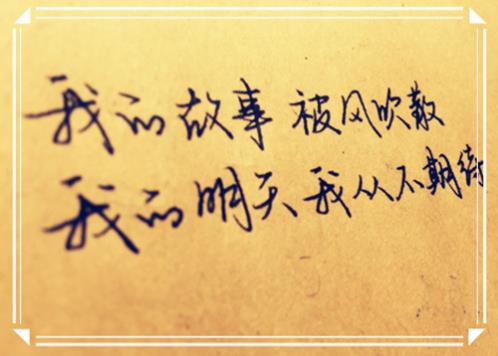 我的故事 被风吹散
我的明天 我从不期待